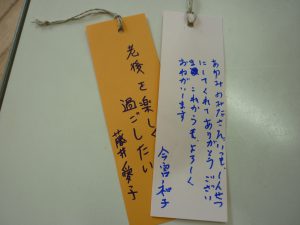 あゆみのみなさん、いつも、しんせつ
にしてくれてありがとうござい
ます これからも、よろしく
おねがいします
今宮和子
老後を楽しく
過ごしたい
藤井愛子